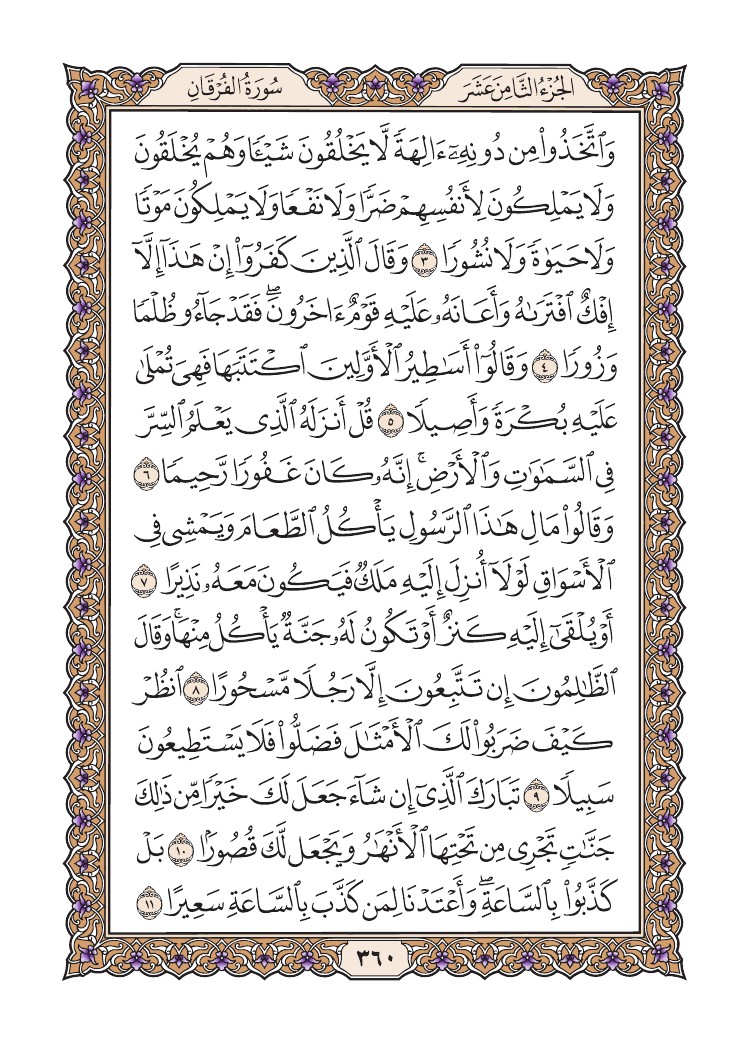 الجُزْءُ الثَّامِنَ عَشَرَ
سُورَةُ الفُرْقَانِ
وَٱتَّخَذُوا۟ مِن دُونِهِۦٓ ءَالِهَةً لَّا يَخْلُقُونَ شَيْـًٔا وَهُمْ يُخْلَقُونَ
وَلَا يَمْلِكُونَ لِأَنفُسِهِمْ ضَرًّا وَلَا نَفْعًا وَلَا يَمْلِكُونَ مَوْتًا
وَلَا حَيَوٰةً وَلَا نُشُورًا ٣ وَقَالَ ٱلَّذِينَ كَفَرُوٓا۟ إِنْ هَـٰذَآ إِلَّآ
إِفْكٌ ٱفْتَرَىٰهُ وَأَعَانَهُۥ عَلَيْهِ قَوْمٌ ءَاخَرُونَ ۖ فَقَدْ جَآءُو ظُلْمًا
وَزُورًا ٤ وَقَالُوٓا۟ أَسَـٰطِيرُ ٱلْأَوَّلِينَ ٱكْتَتَبَهَا فَهِىَ تُمْلَىٰ
عَلَيْهِ بُكْرَةً وَأَصِيلًا ٥ قُلْ أَنزَلَهُ ٱلَّذِى يَعْلَمُ ٱلسِّرَّ
فِى ٱلسَّمَـٰوَٰتِ وَٱلْأَرْضِ ۚ إِنَّهُۥ كَانَ غَفُورًا رَّحِيمًا ٦
وَقَالُوا۟ مَالِ هَـٰذَا ٱلرَّسُولِ يَأْكُلُ ٱلطَّعَامَ وَيَمْشِى فِى
ٱلْأَسْوَاقِ لَوْلَآ أُنزِلَ إِلَيْهِ مَلَكٌ فَيَكُونَ مَعَهُۥ نَذِيرًا ٧
أَوْ يُلْقَىٰٓ إِلَيْهِ كَنزٌ أَوْ تَكُونُ لَهُۥ جَنَّةٌ يَأْكُلُ مِنْهَا ۚ وَقَالَ
ٱلظَّـٰلِمُونَ إِن تَتَّبِعُونَ إِلَّا رَجُلًا مَّسْحُورًا ٨ ٱنظُرْ
كَيْفَ ضَرَبُوا۟ لَكَ ٱلْأَمْثَـٰلَ فَضَلُّوا۟ فَلَا يَسْتَطِيعُونَ
سَبِيلًا ٩ تَبَارَكَ ٱلَّذِىٓ إِن شَآءَ جَعَلَ لَكَ خَيْرًا مِّن ذَٰلِكَ
جَنَّـٰتٍ تَجْرِى مِن تَحْتِهَا ٱلْأَنْهَـٰرُ وَيَجْعَل لَّكَ قُصُورًۢا ١٠ بَلْ
كَذَّبُوا۟ بِٱلسَّاعَةِ ۖ وَأَعْتَدْنَا لِمَن كَذَّبَ بِٱلسَّاعَةِ سَعِيرًا ١١
٣٦٠